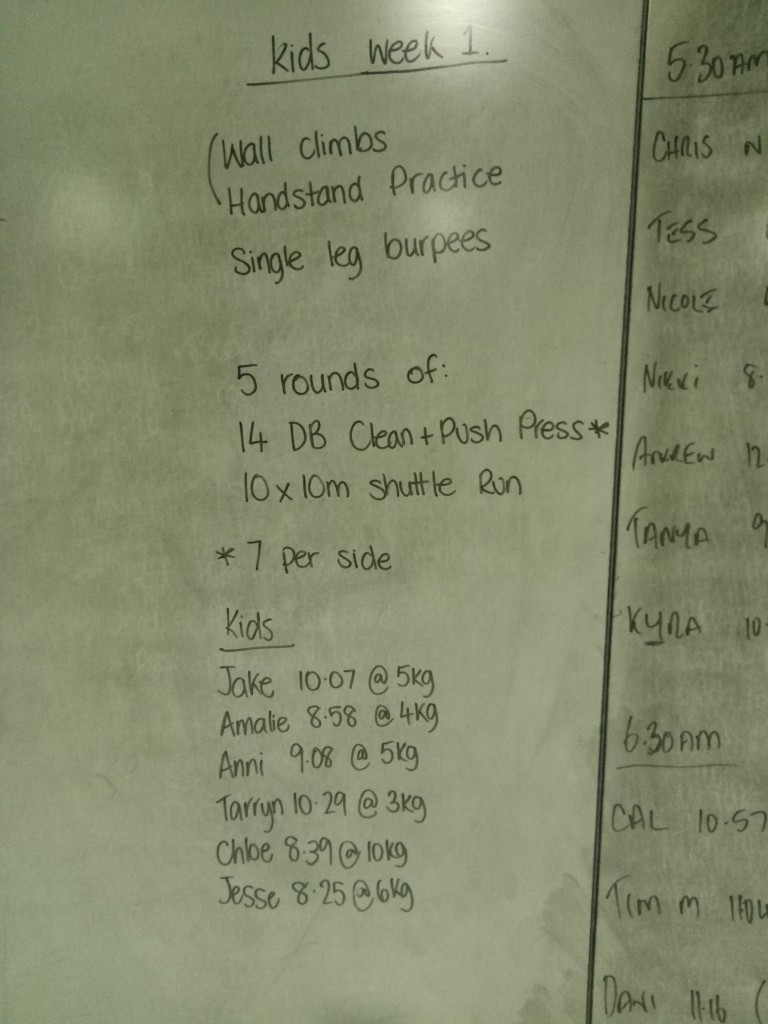 Kids Week 1.
Wall climbs
Handstand Practice
Single leg burpees
5 rounds of:
14 DB Clean + Push Press *
10 x 10m Shuttle Run
* 7 per side
Kids
Jake 10.07 @ 5kg
Amalie 8.58 @ 4kg
Anni 9.08 @ 5kg
Tarryn 10.29 @ 3kg
Chloe 8.39 @ 10kg
Jesse 8.25 @ 6kg
5.30AM
CHRIS N
TESS
NICOLE
NIKKI 8.
ANDREW 12.
TANYA 9
KYRA 10.
6.30AM
CAL 10.57
TIM M
DANI 11.16 (